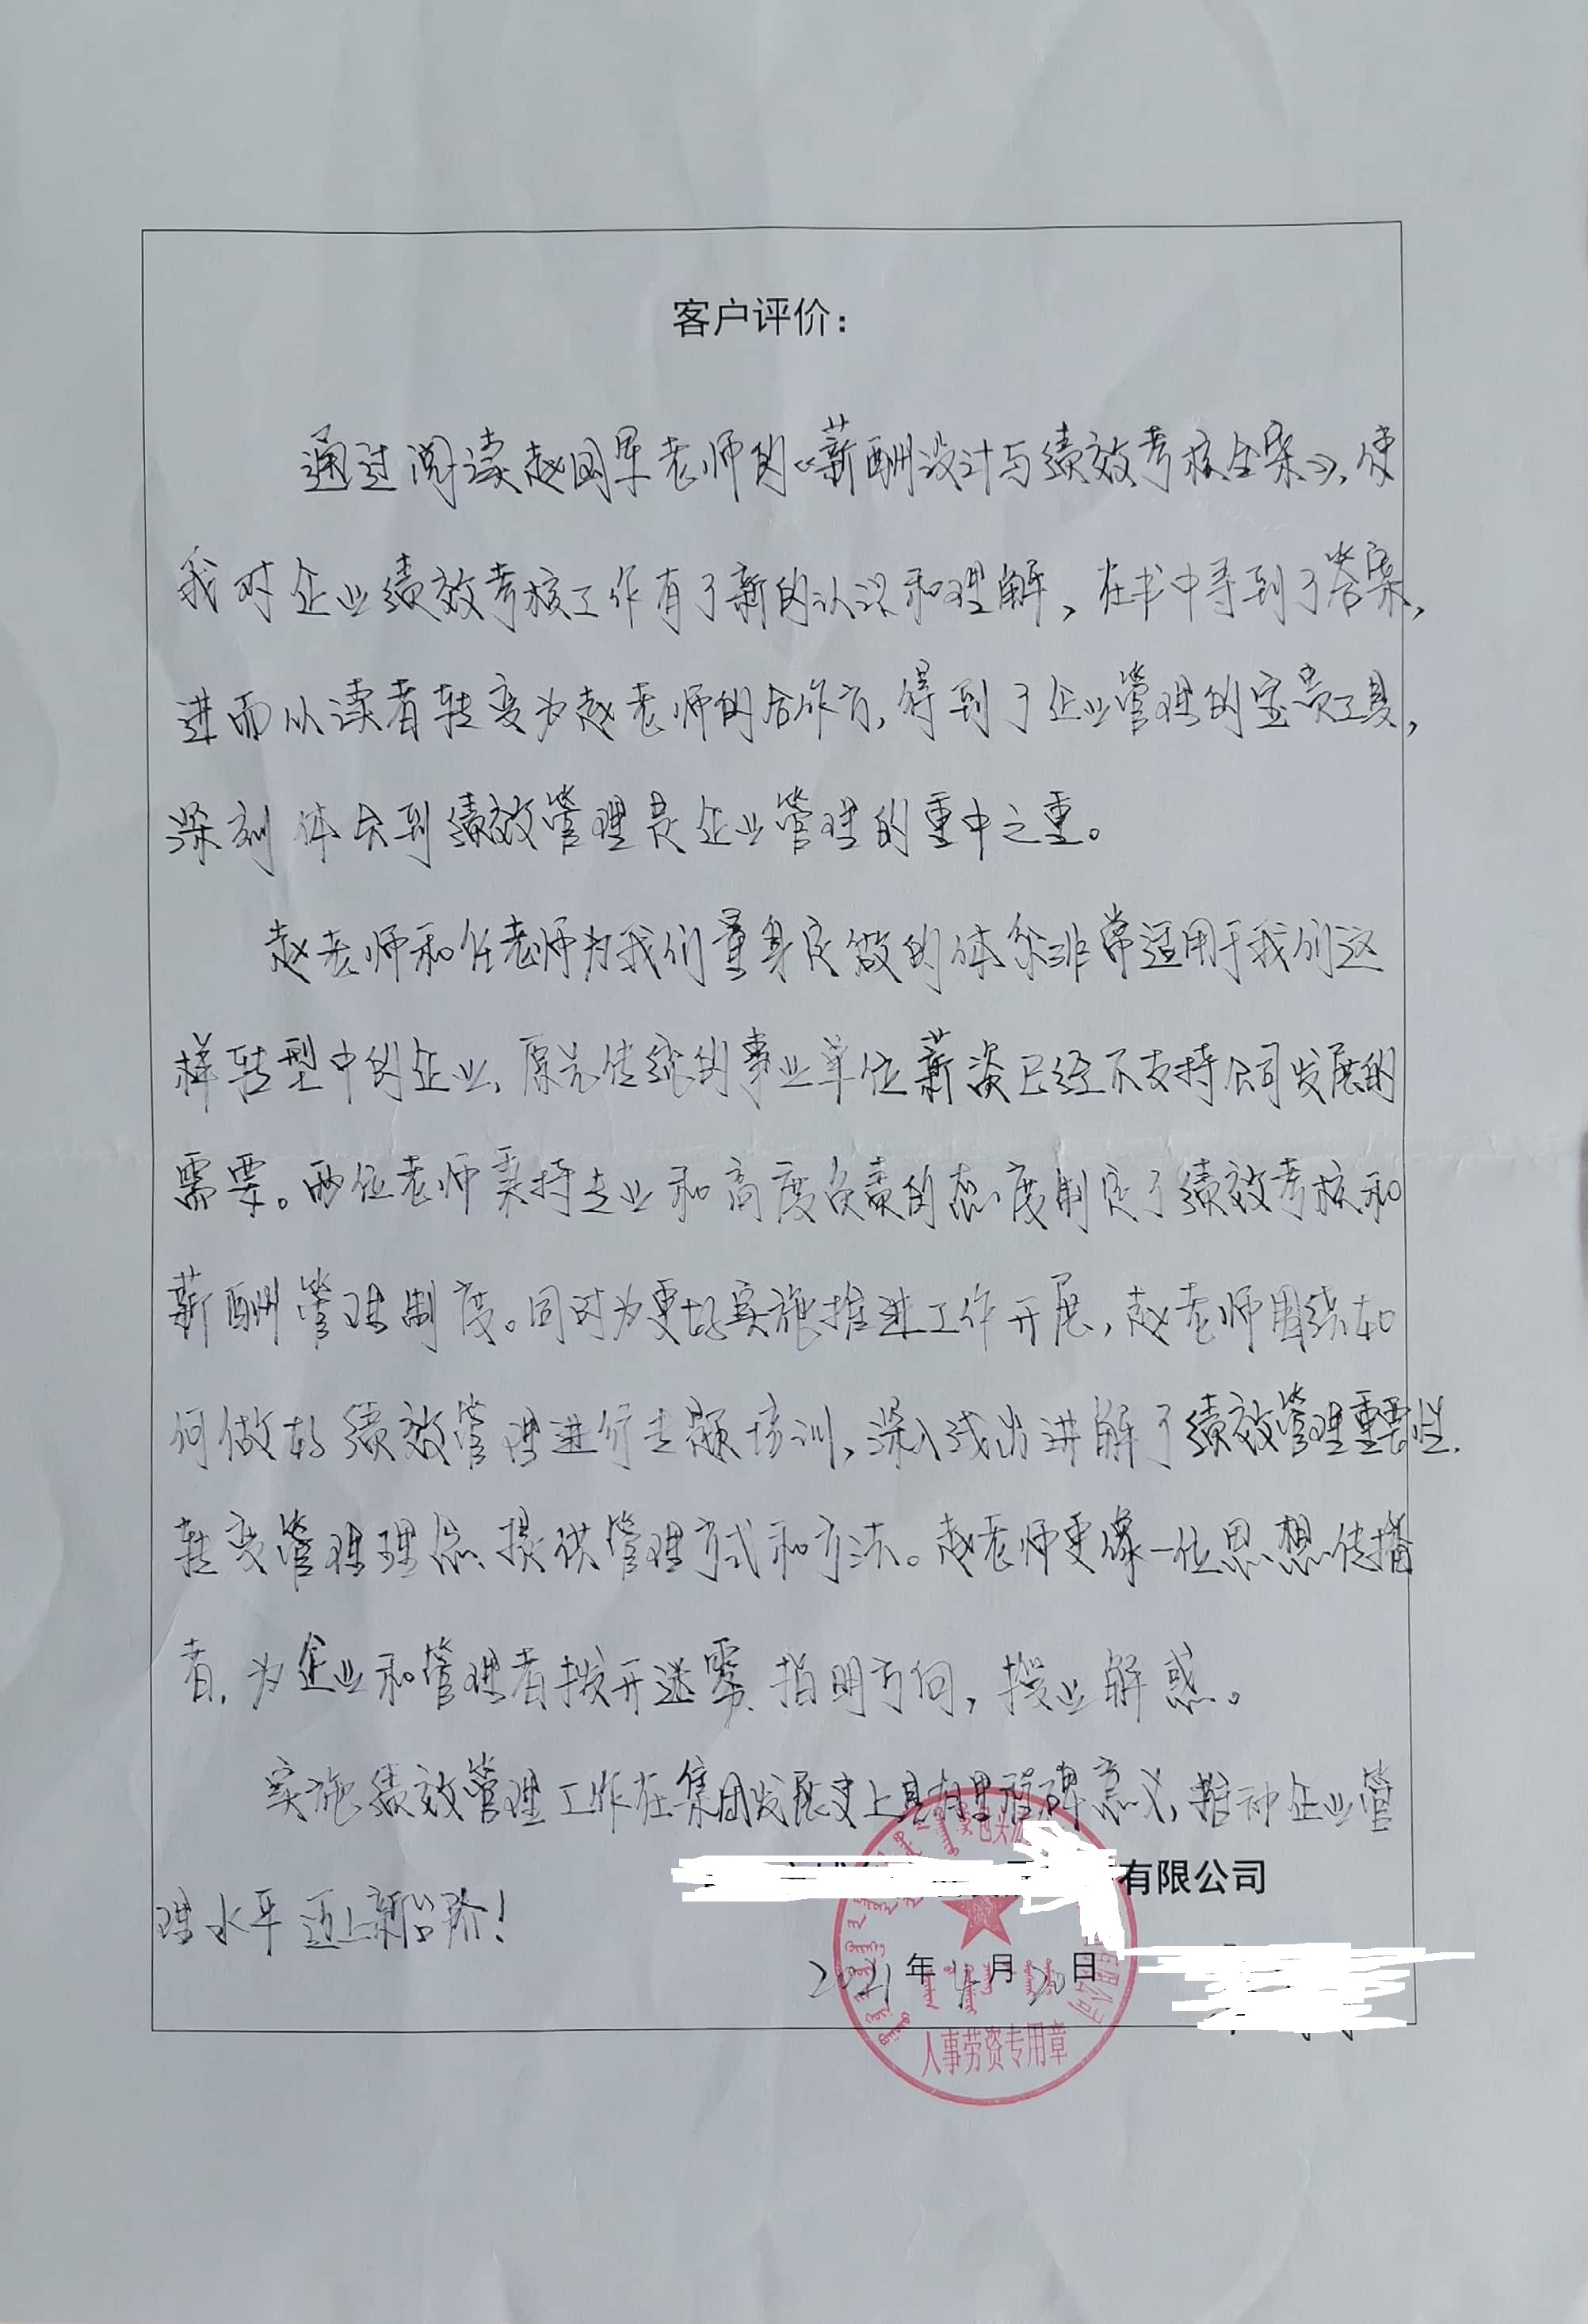 客户评价：
通过阅读赵国军老师的《薪酬设计与绩效考核全案》，使
我对企业绩效考核工作有了新的认识和理解，在书中寻到了答案，
进而从读者转变为赵老师的合作方，得到了企业管理的宝贵工具，
深刻体会到绩效管理是企业管理的重中之重。
赵老师和任老师为我们量身定做的体系非常适用于我们这
样转型中的企业，原先传统的事业单位薪资已经不支持公司发展的
需要。两位老师秉持专业和高度负责的态度制定了绩效考核和
薪酬管理制度。同时为更好实施推进工作开展，赵老师围绕如
何做好绩效管理进行专题培训，深入浅出讲解了绩效管理重要性、
转变管理理念、提供管理方式和方法。赵老师更像一位思想传播
者，为企业和管理者拨开迷雾、指明方向，授业解惑。
实施绩效管理工作在集团发展史上具有里程碑意义，推动企业管
有限公司
理水平迈上新台阶！
2021年4月20日
人事劳资专用章